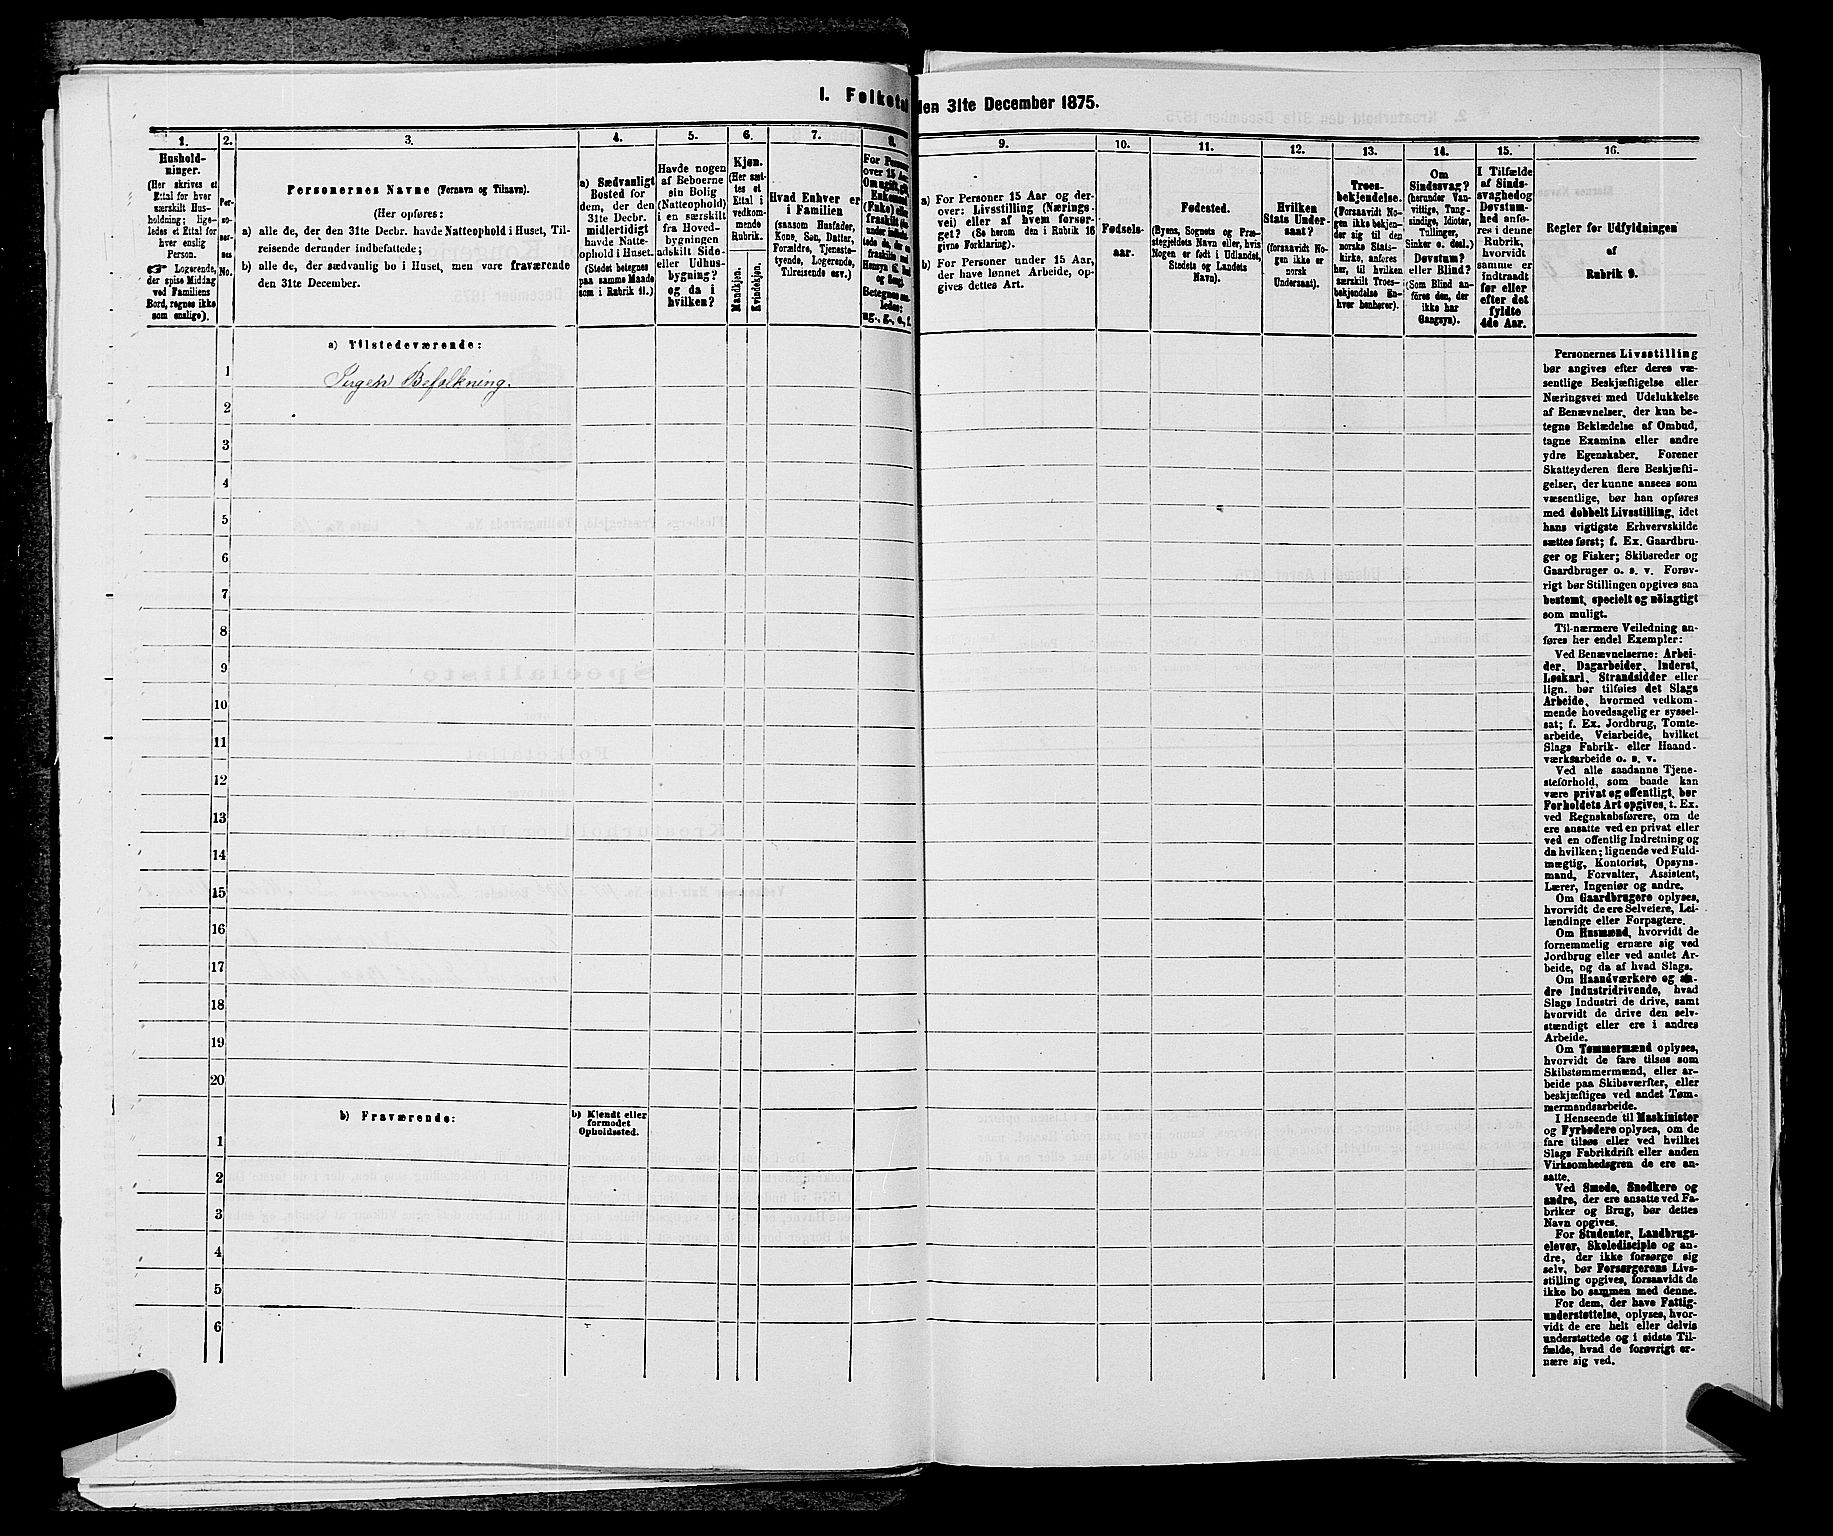 I. Folketal
den 31te December 1875.
1.
Hushold-
ninger.
(Her skrives et
Ettal for hver
særskilt Hus-
holdning; lige-
ledes et Ettal for
hver enslig
Person.
☞ Logerende,
der spise Middag
ved Familiens
Bord, regnes ikke
som enslige).
2.
Per-
so-
ner-
nes
No.
3.
Personernes Navne (Fornavn og Tilnavn).
(Her opføres:
a) alle de, der den 31te Decbr. havde Natteophold i Huset, Til-
reisende derunder indbefattede;
b) alle de, der sædvanlig bo i Huset, men vare fraværende
den 31te December.
4.
a) Sædvanligt
Bosted for
dem, der den
31te Decbr.
midlertidigt
havde Natte-
ophold i Huset.
(Stedet betegnes
paa samme Maade
som i Rubrik 11.)
5.
Havde nogen
af Beboerne
sin Bolig
(Natteophold)
i en særskilt
fra Hoved-
bygningen
adskilt Side-
eller Udhus-
bygning?
og da i
hvilken?
6.
Kjøn.
(Her sæt-
tes et
Ettal i
vedkom-
mende
Rubrik.
Mandkjøn.
Kvindekjøn.
7.
Hvad Enhver er
i Familien
(saasom Husfader,
Kone, Søn, Datter,
Forældre, Tjeneste-
tyende, Logerende,
Tilreisende osv.)
8.
For Personer
over 15 Aar:
Om ugift, gift,
Enkemand
(Enke) eller
fraskilt
Betegnes saa-
ledes:
ug., g., e., f.
9.
a) For Personer 15 Aar og der-
over: Livsstilling (Nærings-
vei) eller af hvem forsør-
get? (Se herom den i Rubrik 16
givne Forklaring).
b) For Personer under 15 Aar,
der have lønnet Arbeide, op-
gives dettes Art.
10.
Fødsels-
aar.
11.
Fødested.
(Byens, Sognets og Præ-
stegjeldets Navn eller, hvis
Nogen er født i Udlandet,
Stedets og Landets
Navn).
12.
Hvilken
Stats Under-
saat?
(forsaavidt No-
gen ikke er
norsk
Undersaat).
13.
Troes-
bekjendelse.
(Forsaavidt No-
gen ikke bekjen-
der sig til den
norske Stats-
kirke, anføres
her, til hvilken
særskilt Troes-
bekjendelse En-
hver henhører).
14.
Om
Sindssvag?
(herunder Van-
vittige, Tung-
sindige, Idioter,
Tullinger,
Sinker o. desl.)
Døvstum?
eller Blind?
(Som Blind an-
føres den, der
ikke har
Gangsyn).
15.
I Tilfælde
af Sinds-
svaghed og
Døvstum-
hed anfø-
res i denne
Rubrik,
hvorvidt
samme er
indtraadt
før eller
efter det
fyldte
4de Aar.
16.
Regler for Udfyldningen
af
Rubrik 9.
a) Tilstedeværende:
1
Ingen Befolkning.
2
3
4
5
6
7
8
9
10
11
12
13
14
15
16
17
18
19
20
b) Fraværende:
b) Kjendt eller
formodet
Opholdssted.
1
2
3
4
5
6
Personernes Livsstilling
bør angives efter deres væ-
sentlige Beskjæftigelse eller
Næringsvei med Udelukkelse
af Benævnelser, der kun be-
tegne Beklædelse af Ombud,
tagne Examina eller andre
ydre Egenskaber. Forener
Skatteyderen flere Beskjæfti-
gelser, der kunne ansees som
væsentlige, bør han opføres
med dobbelt Livsstilling, idet
hans vigtigste Erhvervskilde
sættes først; f. Ex. Gaardbru-
ger og Fisker; Skibsreder og
Gaardbruger o. s. v. Forøv-
rigt bør Stillingen opgives saa
bestemt, specielt og nöiagtigt
som muligt.
Til nærmere Veiledning an-
føres her endel Exempler:
Ved Benævnelserne: Arbei-
der, Dagarbeider, Inderst,
Løskarl, Strandsidder eller
lign. bør tilføies det Slags
Arbeide, hvormed vedkom-
mende hovedsagelig er syssel-
sat; f. Ex. Jordbrug, Tomte-
arbeide, Veiarbeide, hvilket
Slags Fabrik- eller Haand-
værksarbeide o. s. v.
Ved alle saadanne Tjene-
steforhold, som baade kan
være privat og offentligt, bør
Forholdets Art opgives, t. Ex.
ved Regnskabsførere, om de
ere ansatte ved en privat eller
ved en offentlig Indretning og
da hvilken; lignende ved Fuld-
mægtig, Kontorist, Opsyns-
mand, Forvalter, Assistent,
Lærer, Ingeniør og andre.
Om Gaardbrugere oplyses,
hvorvidt de ere Selveiere, Lei-
lændinge eller Forpagtere.
Om Husmænd, hvorvidt de
fornemmelig ernære sig ved
Jordbrug eller ved andet Ar-
beide, og da af hvad Slags.
Om Haandværkere og an-
dre Industridrivende, hvad
Slags Industri de drive, samt
hvorvidt de drive den selv-
stændigt eller ere i andres
Arbeide.
Om Tømmermænd oplyses,
hvorvidt de fare tilsøs som
Skibstømmermænd, eller ar-
beide paa Skibsværfter, eller
beskjæftiges ved andet Tøm-
mermandsarbeide.
I Henseende til Maskinister
og Fyrbødere oplyses, om de
fare tilsøs eller ved hvilket
Slags Fabrikdrift eller anden
Virksomhedsgren de ere an-
satte.
Ved Smede, Snedkere og
andre, der ere ansatte ved Fa-
briker og Brug, bør dettes
Navn opgives.
For Studenter, Landbrugs-
elever, Skoledisciple og an-
dre, der ikke forsørge sig
selv, bør Forsørgerens Livs-
stilling opgives, forsaavidt de
ikke bo sammen med denne.
For dem, der have Fattig-
understøttelse, oplyses, hvor-
vidt de ere helt eller delvis
understøttede og i sidste Til-
fælde, hvad de forøvrigt er-
nære sig ved.